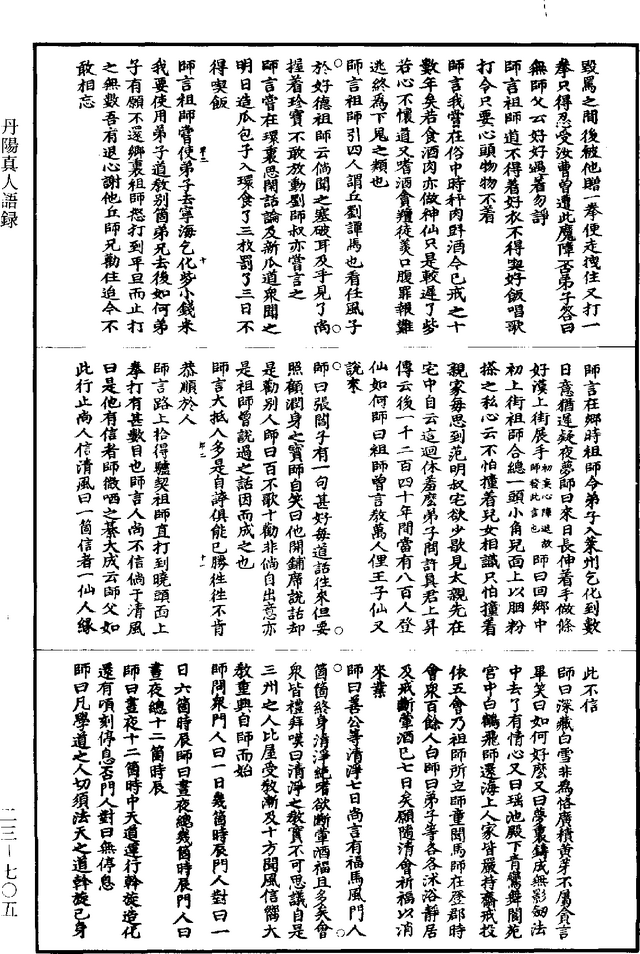 毀罵之間後被他贈一拳便走拽住又打一
拳只得忍受汝曹曾遭此魔障否弟子答曰
無師父云好好遇著勿諍
師言祖師道不得着好衣不得喫好飯唱歌
打令只要心頭物物不着
師言我嘗在俗中時秤肉㪷酒今已戒之十
數年矣若食酒肉亦做神仙只是較遲了些
若心不懷道又嗜酒貪羶徒羡口腹罪報難
逃終為下鬼之類也
師言祖師引四人謂丘劉譚馬也看任風子
於好德祖師云倘聞之塞破耳及乎見了尚
握着珍寶不敢放動劉師叔亦嘗言之
師言嘗在環裏思閑話論及新瓜道衆聞之
明日造瓜包子入環食了三枚罰了三日不
得喫飯
師言祖師嘗使弟子去寧海乞化些小錢米
我要使用弟子道教別箇弟兄去後如何弟
子有願不還鄉裏祖師怒打到平旦而止打
之無數吾有退心謝他丘師兄勸住迨今不
敢相忘
師言在鄉時祖師令弟子入萊州乞化到數
日意猶遲疑夜夢師曰來日長伸着手做條
好漢上街展手初衰心障退故師發此言也師曰回鄉中
初上街祖師合總一頭小角兒面上以胭粉
搽之私心云不怕撞着兒女相識只怕撞着
親家每思到范明叔宅欲少歇見太親先在
宅中自云這迴休羞麼弟子問許真君上昇
傳云後一千二百四十年間當有八百人登
仙如何師曰祖師曾言教萬人俚王子仙又
說來
師曰張閻子有一句甚好每道話往來但要
照顧潤身之寶師自笑曰他開鋪席說話却
是勸別人師曰百不歌十勸非倘自出意亦
是祖師曾說過之話因而成之也
師言大抵人多是自誇俱能已勝徃徃不肯
恭順於人
師言路上拾得驢契祖師直打到曉頭面上
拳打有甚數目也師言人尚不信倘于清風
曰是他有信者師微哂之綦大成云師父如
此行止尚人信清風曰一箇信者一仙人緣
此不信
師曰深藏白雪非為恪廣積黃芽不屬貪言
畢笑曰如何好麼又曰夢裏鑄成無影劒法
中去了有情心又曰瑤池殿下青鸞舞閬苑
宮中白鶴飛師還海上人家皆嚴持齋戒投
依五會乃祖師所立師董閱馬師在登郡時
會衆百餘人白師曰弟子等各各沐浴靜居
及戒斷葷酒已七日矣願隨清會祈福以消
來業
師曰善公等清淨七日尚言有福馬風門人
箇箇終身清淨絕嗜欲斷葷酒福且多矣會
衆皆禮拜嘆曰清淨之教實不可思議自是
三州之人比屋受教漸及十方聞風信嚮大
教重興自師而始
師問衆門人曰一日幾箇時辰門人對曰一
日六箇時辰師曰晝夜總幾箇時辰門人曰
晝夜總十二箇時辰
師曰晝夜十二箇時中天道運行斡旋造化
還有頃刻停息否門人對曰無停息
師曰凡學道之人切須法天之道斡旋己身
丹陽真人語録
二三—七〇五